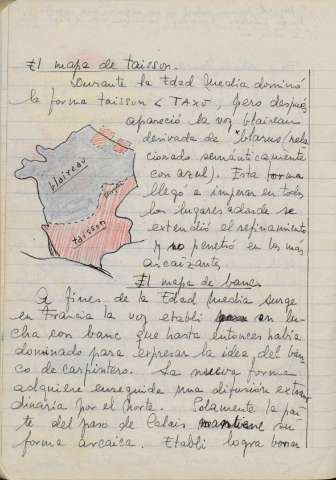 El mapa de taisson.
Durante la Edad Media dominó
la forma taisson < TAXO, pero después
apareció la voz blaireau
derivada de *blarus (rela
cionado semánticamente
con azul). Esta forma
llegó a imperar en todos
los lugares adonde se
extendió el refinamiento
y no penetró en los más
arcaizantes.
blaireau
taisson
El mapa de banc
A fines de la Edad Media surge
en Francia la voz etabli en lu
cha con banc que hasta entonces había
dominado para expresar la idea del ban
co de carpintero. La nueva forma
adquiere enseguida una difusión extraor
dinaria por el norte. Solamente la par
te del paso de Calais mantiene su
forma arcaica. Etabli logra borrar